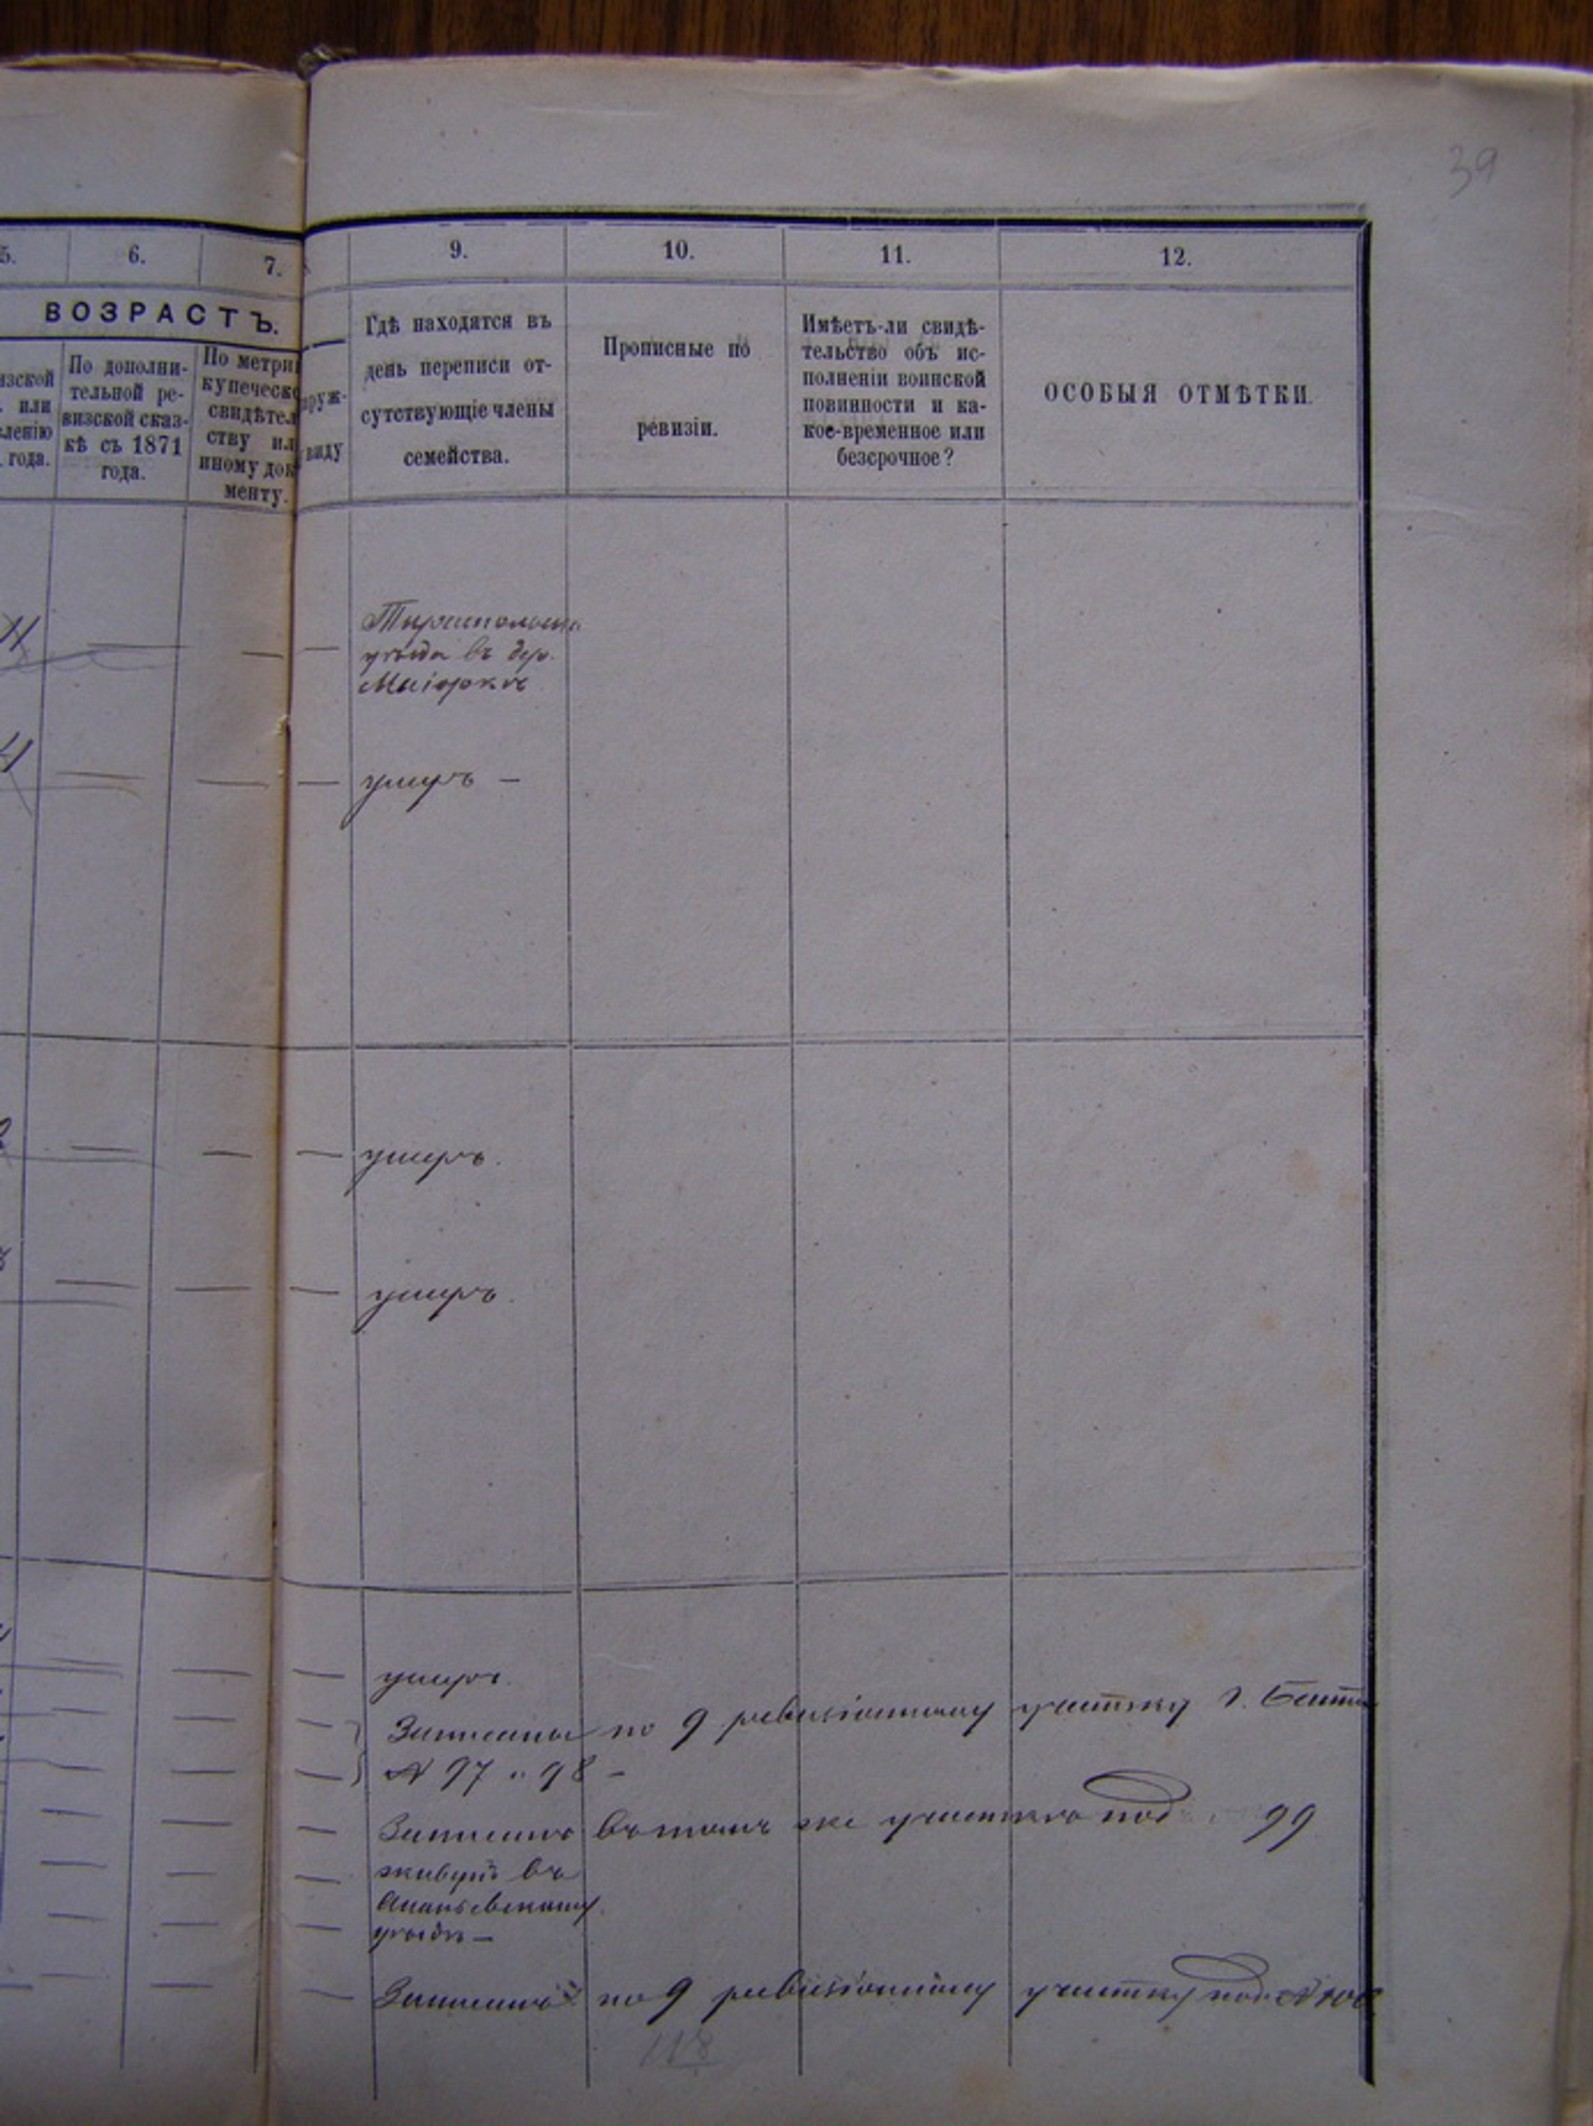 39
5. 6. 7. 9. 10. 11. 12.
ВОЗРАСТЪ.
По дополни-
тельной ре-
визской сказ-
кѣ съ 1871
года.
По метри
купеческо
свидѣтел
ству ил
иному док
менту.
изской
или
года.
руж-
виду
Гдѣ находятся въ
день переписи от-
сутствующіе члены
семейства.
Прописные по
ревизіи.
Имѣетъ-ли свидѣ-
тельство объ ис-
полненіи воинской
повинности и ка-
кое-временное или
безсрочное?
ОСОБЫЯ ОТМѢТКИ.
Тираспольска
уѣзда въ дер.
Маіорке
умеръ —
умеръ.
умеръ.
умеръ.
Записаны по 9 ревизіонному участку г.
№ 97 и 98 —
Записанъ въ томъ же участкѣ под 99
живутъ въ
Ананьевскому
уѣздѣ —
Записанъ по 9 ревизіонному участку под №
118